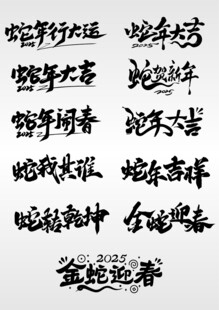 蛇年行大运
2025
蛇年大吉
2025
蛇年大吉
2025
蛇贺新年
2025
蛇年闹春
2025
蛇年大吉
蛇我其谁
蛇年吉祥
蛇转乾坤
金蛇迎春
2025
金蛇迎春